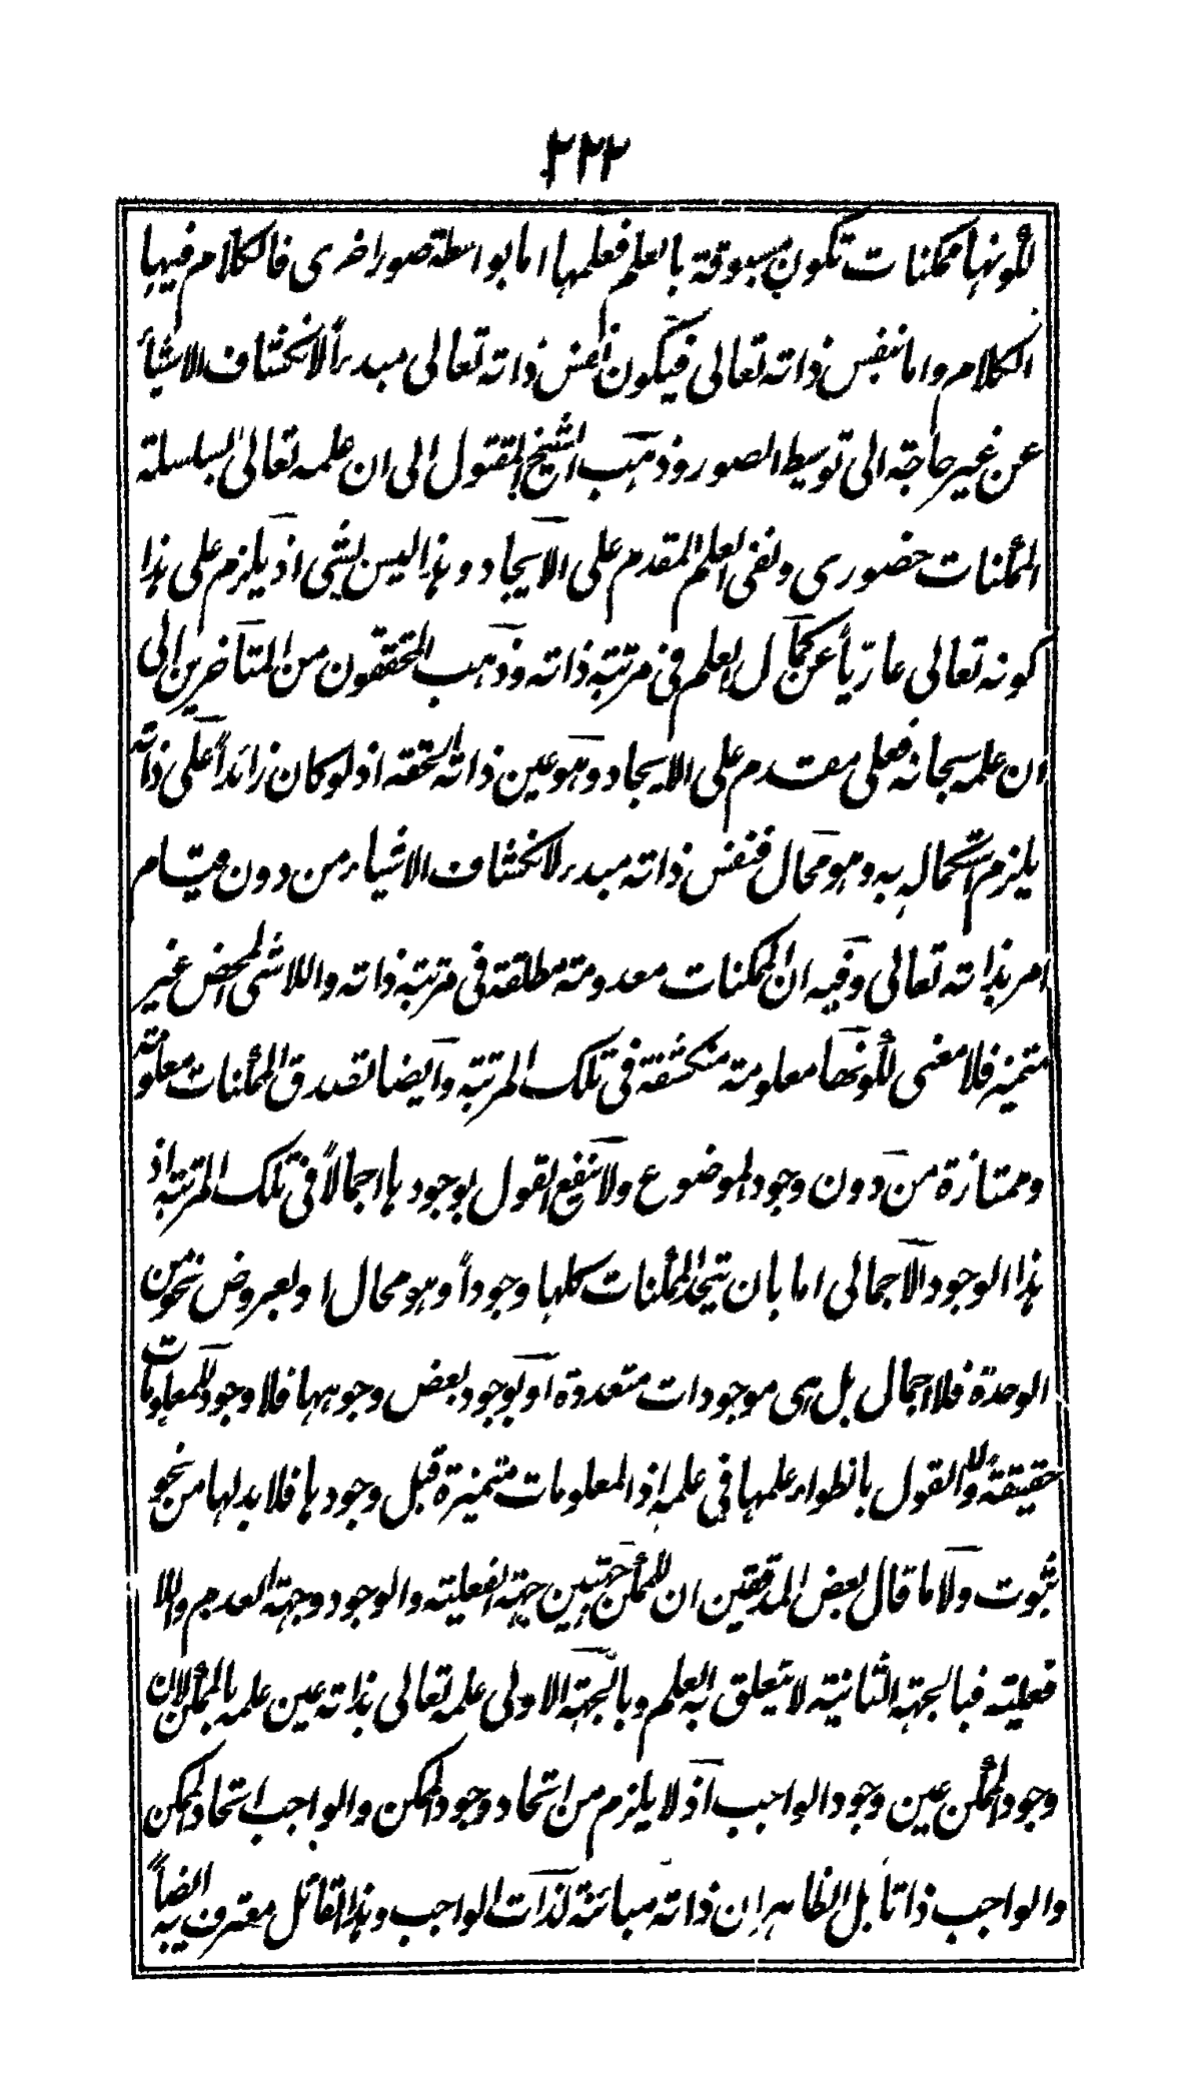 ٢٢٢
لكونها ممكنات تكون مسبوقة بالعلم فعلمها اما بواسطة صور اخرى فالكلام فيها
الكلام واما بنفس ذاته تعالى فيكون نفس ذاته تعالى مبدءاً لانكشاف الاشياء
عن غير حاجة الى توسيط الصور وذهب الشيخ المقتول الى ان علمه تعالى بسلسلة
الممكنات حضورى ونفى العلم المقدم على الايجاد وهذا ليس بشئ اذ يلزم على هذا
كونه تعالى عارياً عن كمال العلم فى مرتبة ذاته وذهب المحققون من المتأخرين الى
ان علمه سبحانه فعلى مقدم على الايجاد وهو عين ذاته الحقة اذ لو كان زائداً على ذاته
يلزم استكماله به وهو محال فنفس ذاته مبدء لانكشاف الاشياء من دون قيام
امر بذاته تعالى وفيه ان الممكنات معدومة مطلقة فى مرتبة ذاته واللاشى المحض غير
متميز فلا معنى لكونها معلومة منكشفة فى تلك المرتبة وايضا تصدق الممكنات معلومة
وممتازة من دون وجود الموضوع ولا ينفع القول بوجودها اجمالاً فى تلك المرتبة اذ
هذا الوجود الاجمالى اما بان يتحد الممكنات كلها وجوداً وهو محال او لعروض نحو من
الوحدة فلا اجمال بل هى موجودات متعددة او بوجود بعض وجوهها فلا وجود للمعلومات
حقيقة ولا القول بانطواء علمها فى علمه اذ المعلومات متميزة قبل وجودها فلا بد لها من نحو
ثبوت ولا ما قال بعض المدققين ان للممكن جهتين جهة الفعلية والوجود وجهة العدم واللا
فعلية فبالجهة الثانية لا يتعلق به العلم وبالجهة الاولى علمه تعالى بذاته عين علمه بالممكن لان
وجود الممكن عين وجود الواجب اذ لا يلزم من اتحاد وجود الممكن والواجب اتحاد الممكن
والواجب ذاتا بل الظاهر ان ذاته مبائنة لذات الواجب وهذا القائل معترف به ايضاً